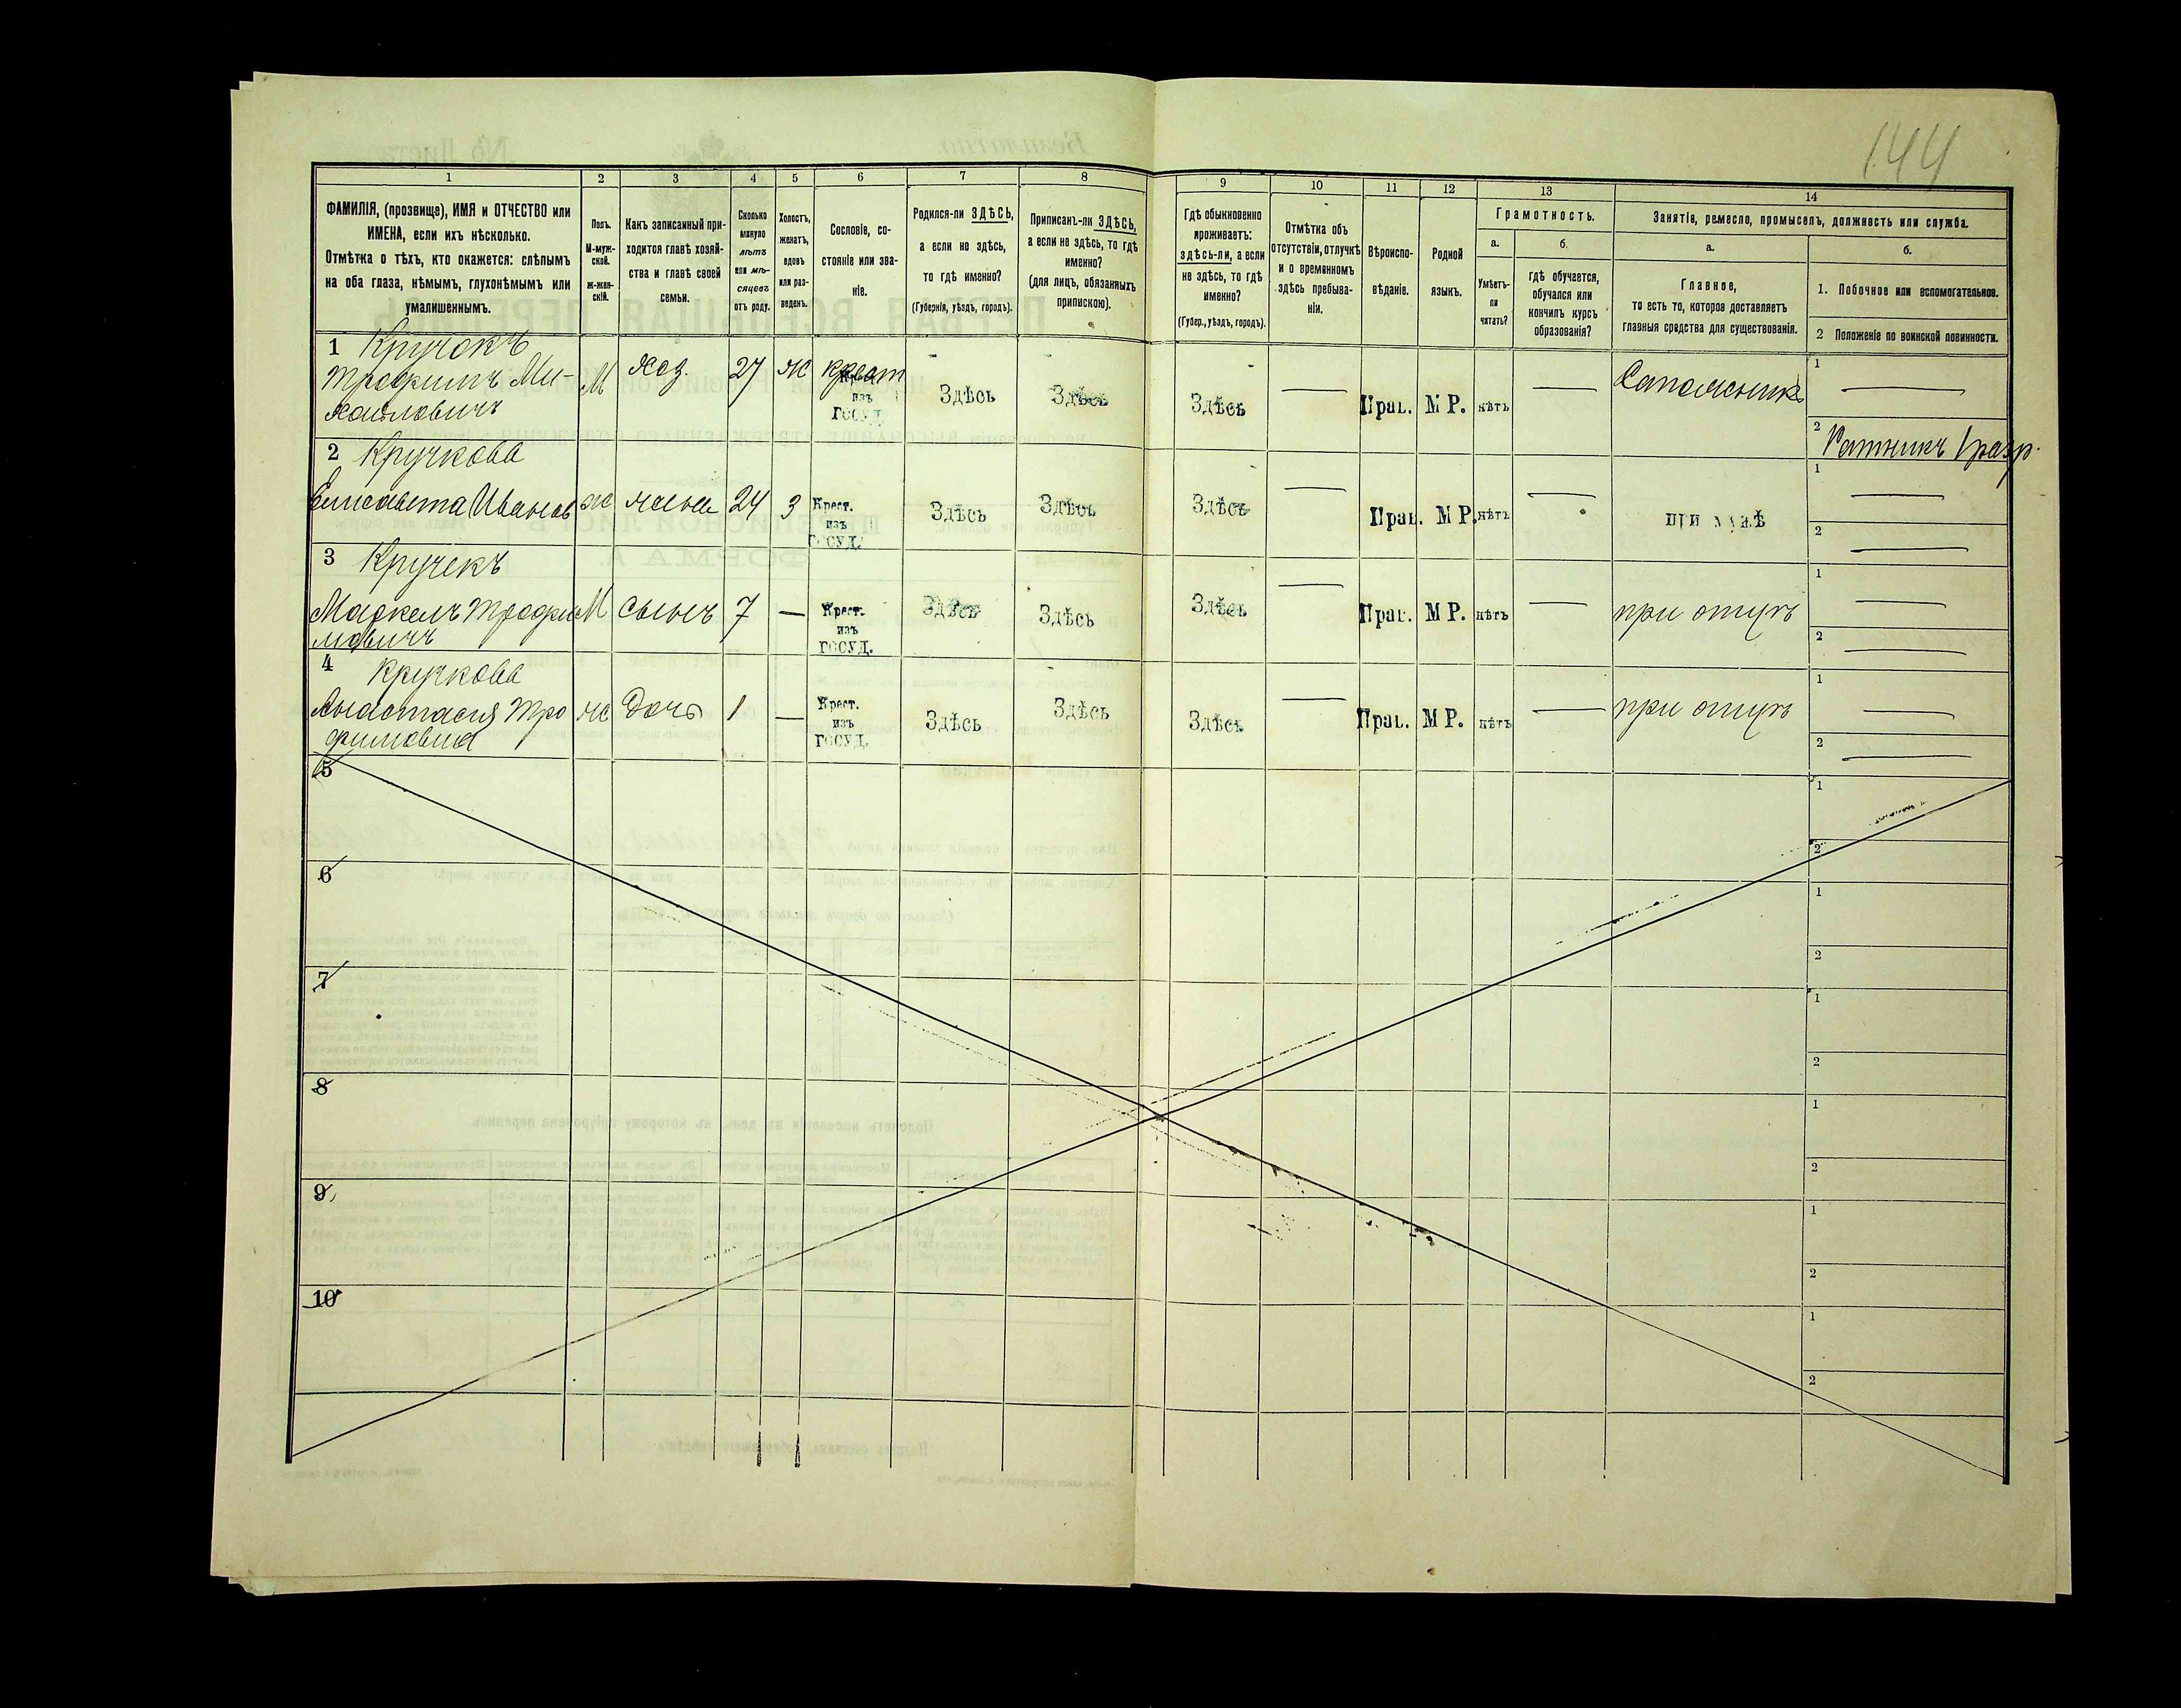 144
1
2
3
4
5
6
7
8
9
10
11
12
13
14
ФАМИЛІЯ, (прозвище), ИМЯ и ОТЧЕСТВО или
ИМЕНА, если ихъ нѣсколько.
Отмѣтка о тѣхъ, кто окажется: слѣпымъ
на оба глаза, нѣмымъ, глухонѣмымъ или
умалишеннымъ.
Полъ.
М-муж-
ской.
ж-жен-
скій.
Какъ записанный при-
ходится главѣ хозяй-
ства и главѣ своей
семьи.
Сколько
минуло
лѣтъ
или мѣ-
сяцевъ
отъ роду.
Холостъ,
женатъ,
вдовъ
или раз-
веденъ.
Сословіе, со-
стояніе или зва-
ніе.
Родился-ли ЗДѢСЬ,
а если не здѣсь,
то гдѣ именно?
(Губернія, уѣздъ, городъ).
Приписанъ-ли ЗДѢСЬ,
а если не здѣсь, то гдѣ
именно?
(для лицъ, обязанныхъ
припискою).
Гдѣ обыкновенно
проживаетъ:
здѣсь-ли, а если
не здѣсь, то гдѣ
именно?
(Губер., уѣздъ, городъ).
Отмѣтка объ
отсутствіи, отлучкѣ
и о временномъ
здѣсь пребыва-
ніи.
Вѣроиспо-
вѣданіе.
Родной
языкъ.
Грамотность.
а.
Умѣетъ-
ли
читать?
б.
гдѣ обучается,
обучался или
кончилъ курсъ
образованія?
Занятіе, ремесло, промыселъ, должность или служба.
а.
Главное,
то есть то, которое доставляетъ
главныя средства для существованія.
б.
1. Побочное или вспомогательное.
2 Положеніе по воинской повинности.
1 Кручокъ
Трофимъ Ми-
хайловичъ
М
хоз.
27
ж
крест
Крест.
изъ
ГОСУД.
Здѣсь
Здѣсь
Здѣсь
Прав.
М Р.
нѣтъ
Сапожникъ
1
2 Ратникъ 1 разр.
2 Кручкова
Елисавета Иванов
ж
жена
24
з
Крест.
изъ
ГОСУД.
Здѣсь
Здѣсь
Здѣсь
Прав.
М Р.
нѣтъ
при мужѣ
1
2
3 Кручекъ
Маркелъ Трофи
мовичъ
М
сынъ
7
Крест.
изъ
ГОСУД.
Здѣсь
Здѣсь
Здѣсь
Прав.
М Р.
нѣтъ
при отцѣ
1
2
4 Кручкова
Анастасія Тро
фимовна
ж
дочь
1
Крест.
изъ
ГОСУД.
Здѣсь
Здѣсь
Здѣсь
Прав.
М Р.
нѣтъ
при отцѣ
1
2
5
1
2
6
1
2
7
1
2
8
1
2
9
1
2
10
1
2